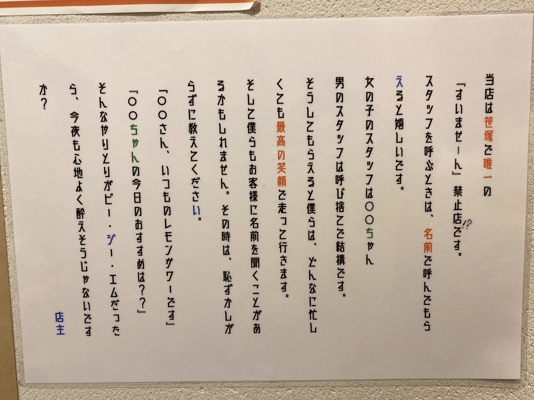 当店は笹塚で唯一の
「すいませーん」禁止店です。!?
スタッフを呼ぶときは、名前で呼んでもら
えると嬉しいです。
女の子のスタッフは〇〇ちゃん
男のスタッフは呼び捨てで結構です。
そうしてもらえると僕らは、どんなに忙し
くても最高の笑顔で走って行きます。
そして僕らもお客様に名前を聞くことがあ
るかもしれません。その時は、恥ずかしが
らずに教えてください。
「〇〇さん、いつものレモンサワーです」
「〇〇ちゃんの今日のおすすめは？？」
そんなやりとりがビー・ジー・エムだった
ら、今夜も心地よく酔えそうじゃないです
か？
店主